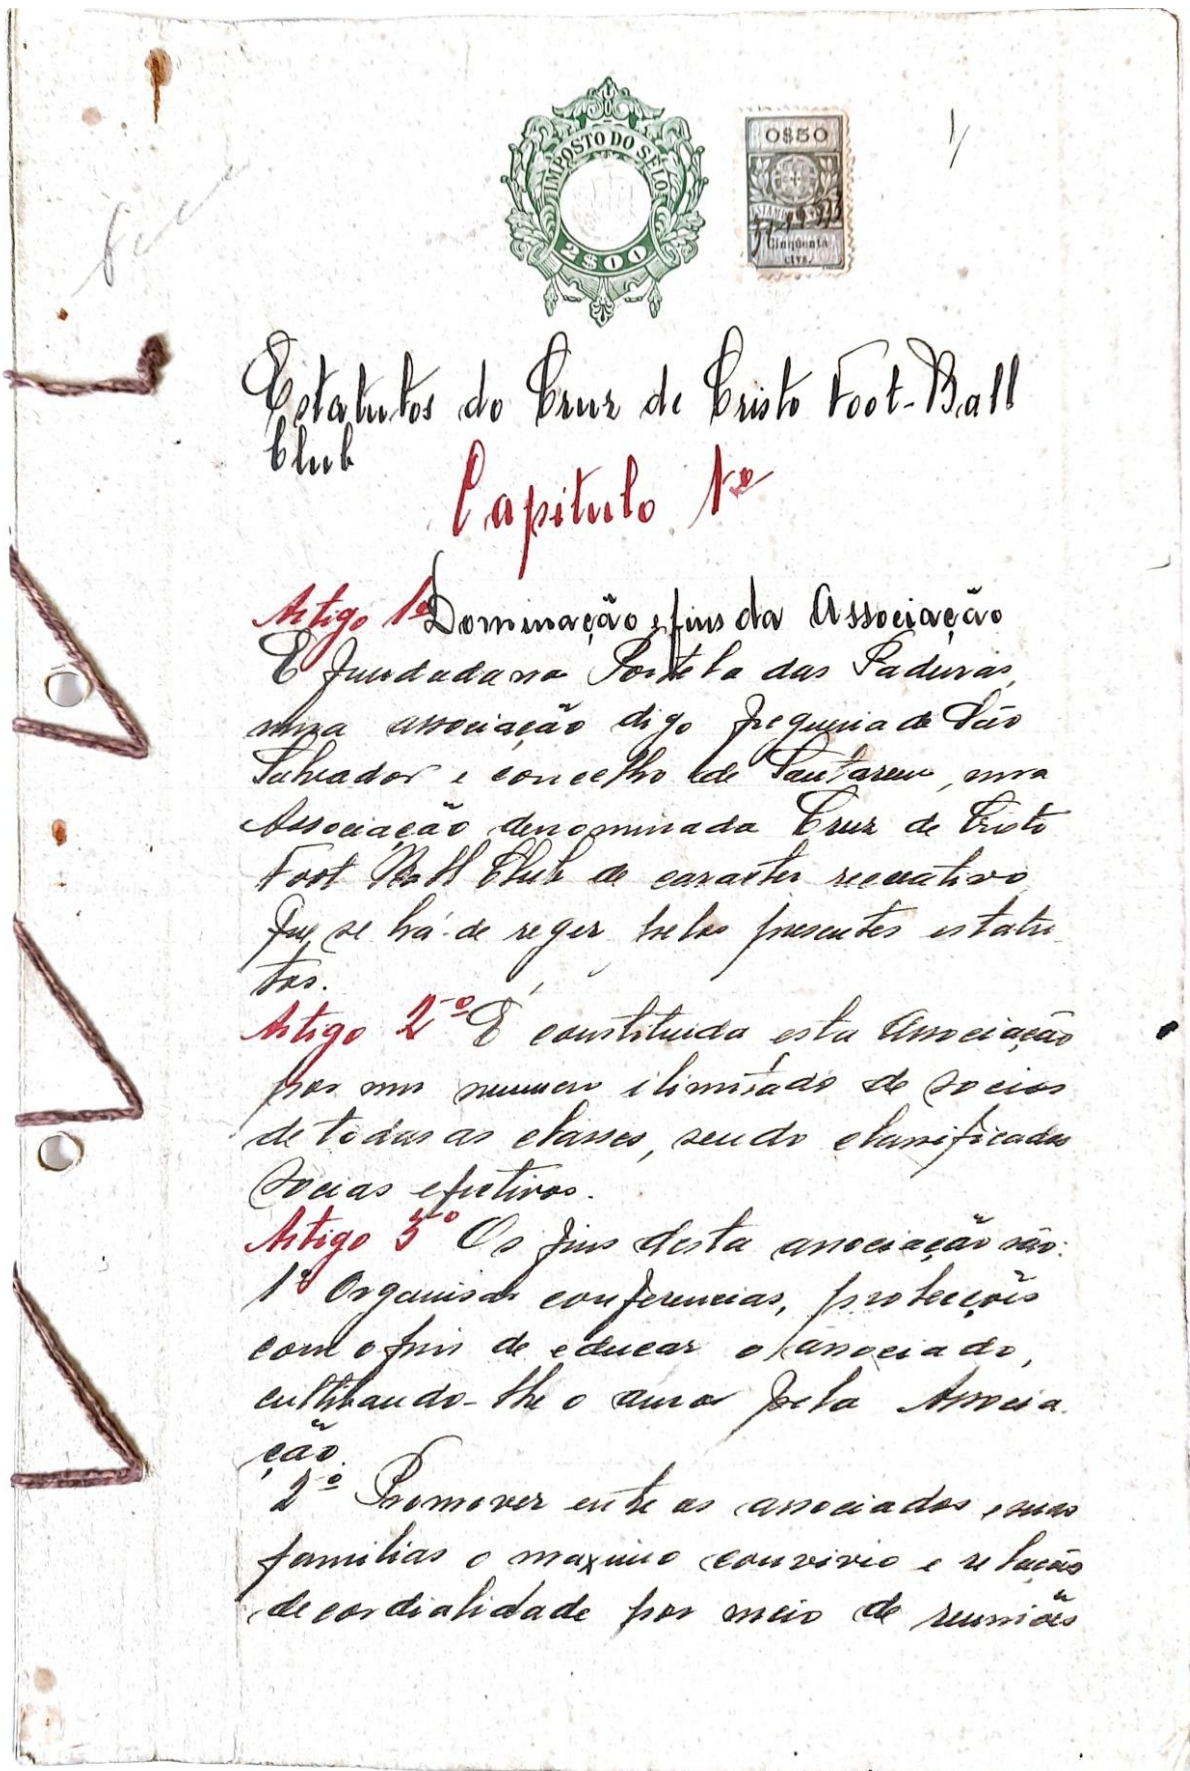 1
IMPOSTO DO SELO
2$00
0$50
Cinquenta
ctvs.
Estatutos do Cruz de Cristo Foot-Ball
Club
Capitulo 1º
Artigo 1º Dominação e fins da Associação
É fundada na Portela das Padeiras,
uma associação digo freguesia de São
Salvador e concelho de Santarem, uma
Associação denominada Cruz de Cristo
Foot Ball Club de caracter recreativo
que se há-de reger pelos presentes estatu-
tos.
Artigo 2º É constituida esta Associação
por um numero ilimitado de socios
de todas as classes, sendo classificados
socios efectivos.
Artigo 3º Os fins desta associação são:
1º Organisar conferencias, protecções
com o fim de educar o associado,
cultivando-lhe o amor pela Associa-
ção.
2º Promover entre os associados e suas
familias o maximo convivio e relações
de cordialidade por meio de reuniões